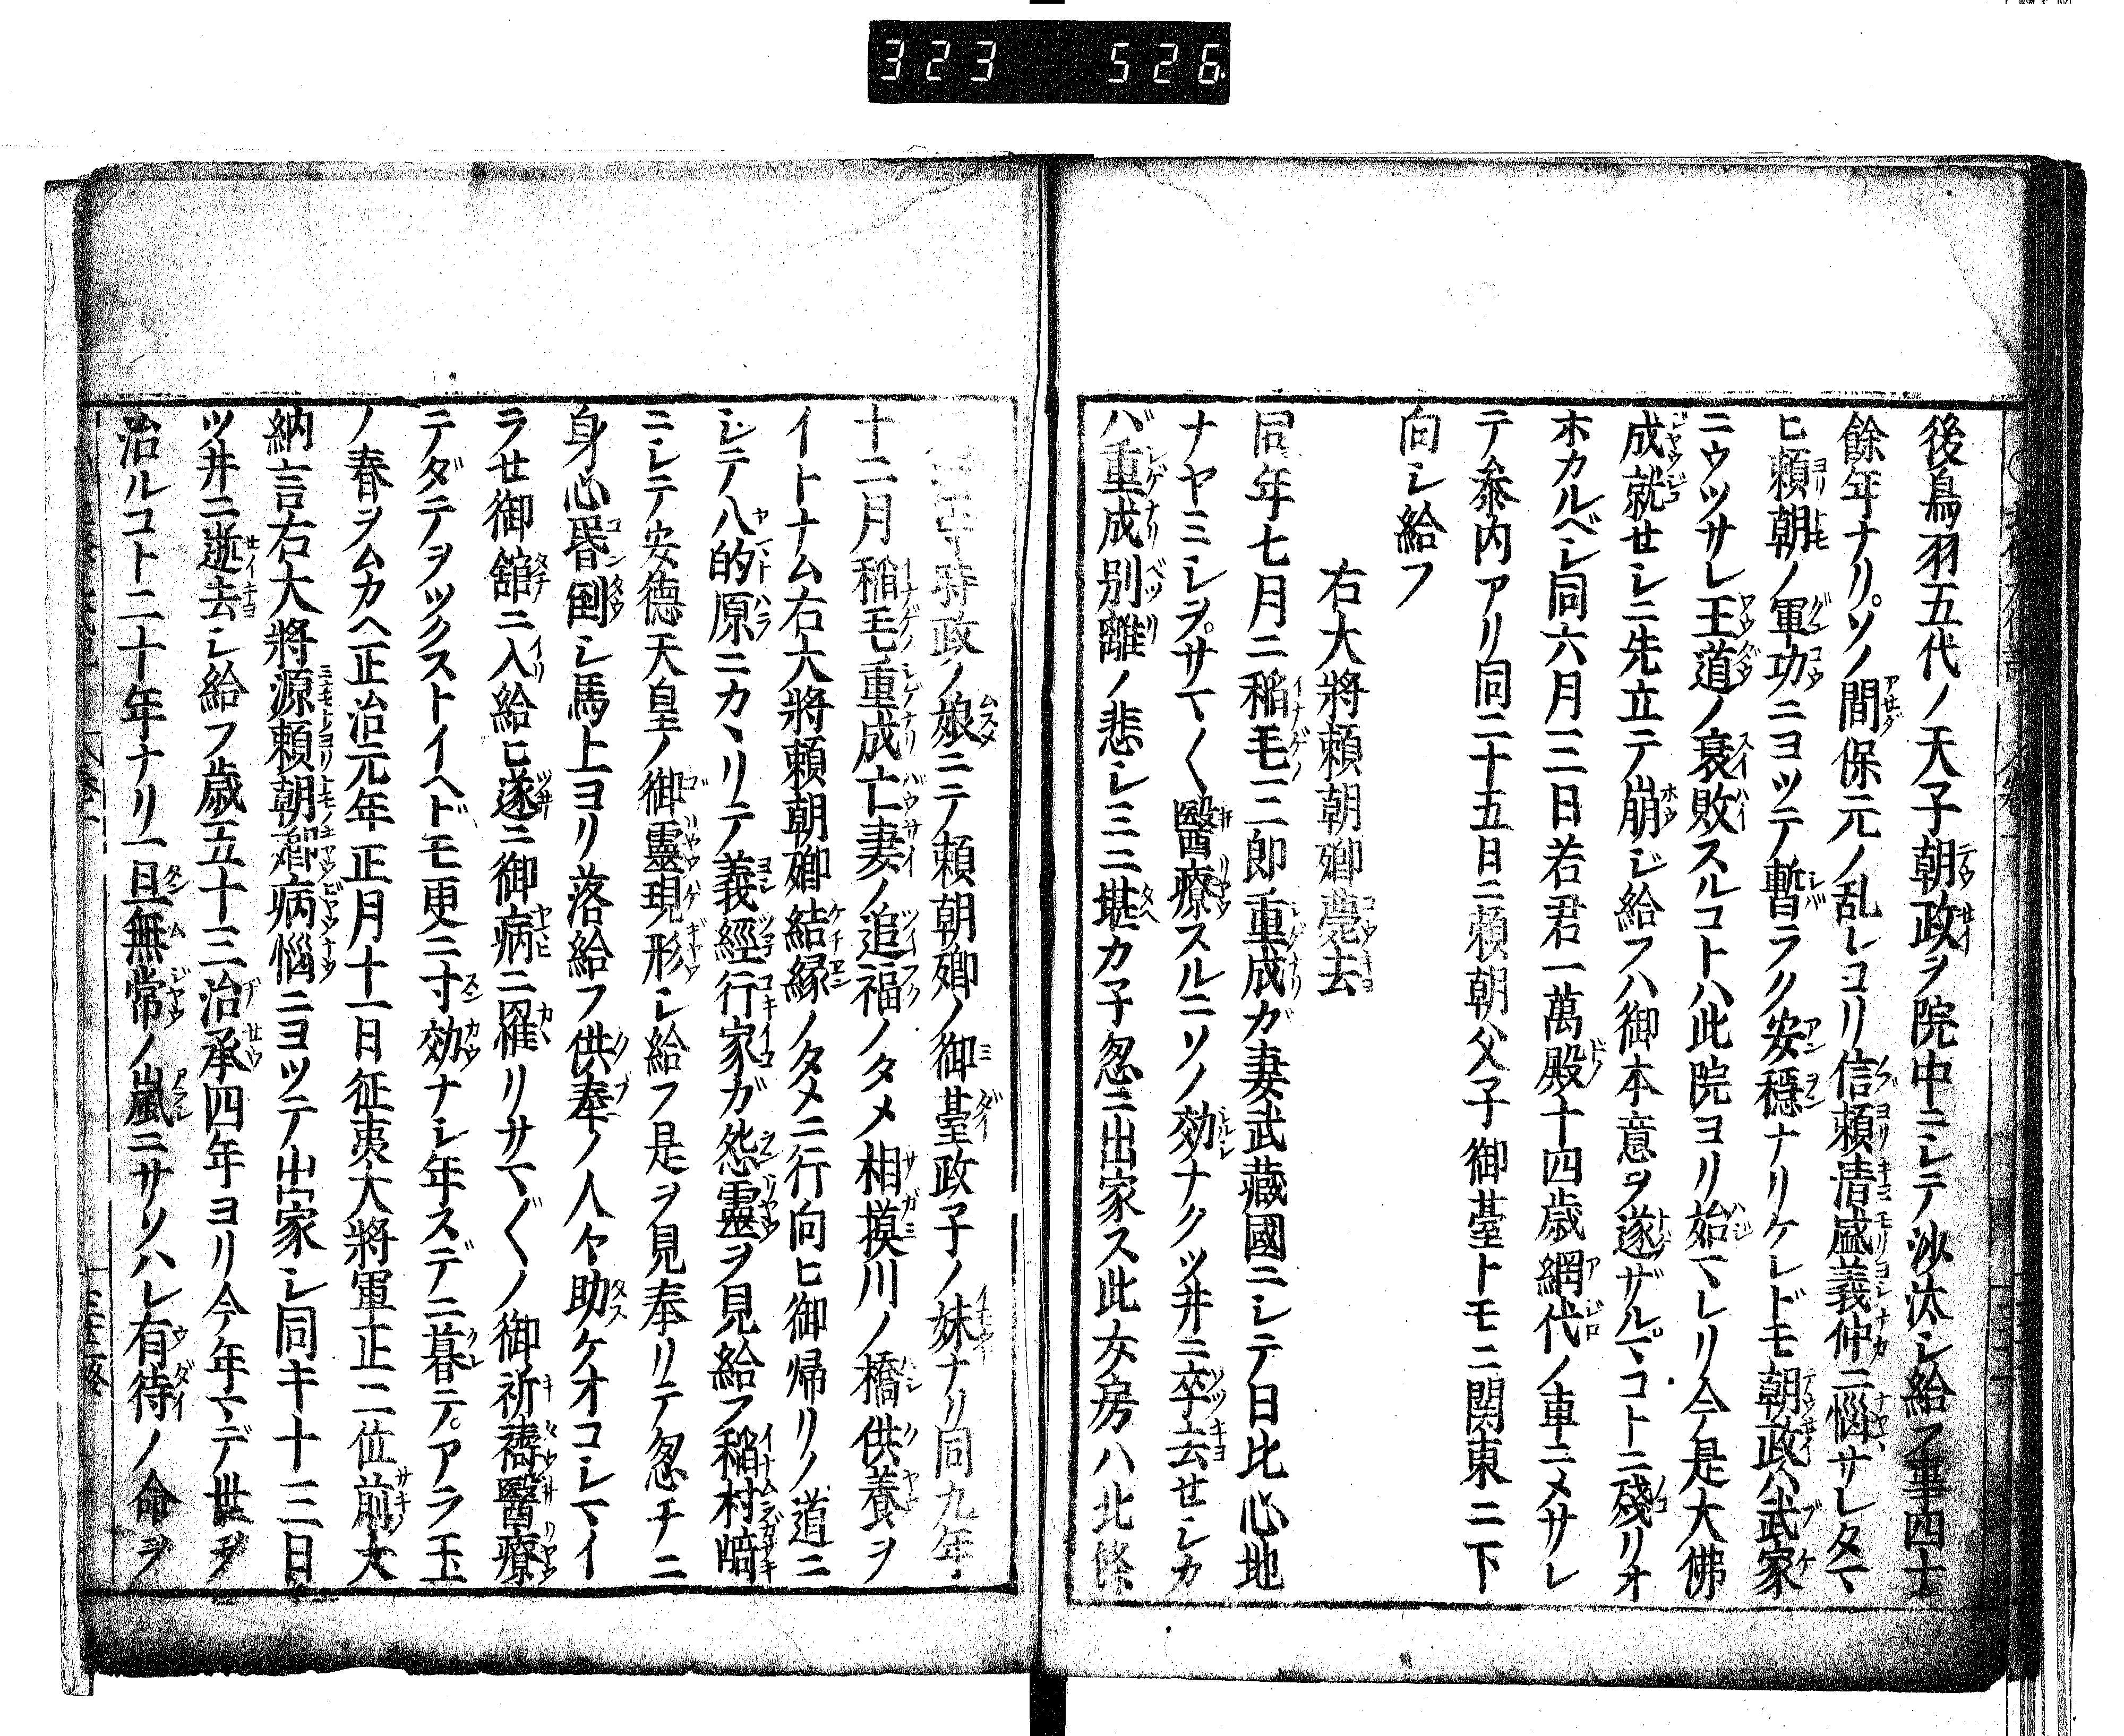 323 526
後鳥羽五代ノ天子朝政ヲ院中ニシテ沙汰シ給フ事四十
餘年ナリソノ間保元ノ乱レコリ信頼清盛義仲ニ惱サレタマ
ヒ頼朝ノ軍功ニヨツテ暫ラク安穏ナリケレドモ朝政ハ武家
ニウツサレ王道ノ衰敗スルコトハ此院ヨリ始マレリ今是大佛
成就セシニ先立テ崩ジ給フハ御本意ヲ遂ザルマコトニ殘リオ
ホカルベシ同六月三日若君一萬殿十四歳網代ノ車ニメサレ
テ参内アリ同二十五日ニ頼朝父子御臺トモニ関東ニ下
向シ給フ
右大將頼朝卿薨去
同年七月ニ稲毛三郎重成ガ妻武藏國ニシテ日比心地
ナヤミシヲサマ〱醫療スルニソノ効ナクツ井ニ卒去セシカ
バ重成別離ノ悲シミニ堪カ子忽ニ出家ス此女房ハ北條
時政ノ娘ニテ頼朝卿ノ御臺政子ノ妹ナリ同九年
十二月稲毛重成亡妻ノ追福ノタメ相摸川ノ橋供養ヲ
イトナム右大將頼朝卿結縁ノタメニ行向ヒ御帰リノ道ニ
シテ八的原ニカヽリテ義經行家ガ怨靈ヲ見給フ稲村﨑
ニシテ安徳天皇ノ御靈現形シ給フ是ヲ見奉リテ忽チニ
身心昏倒シ馬上ヨリ落給フ供奉ノ人々助ケオコシマイ
ラせ御舘ニ入給ヒ遂ニ御病ニ罹リサマ〲ノ御祈禱醫療
テダテヲツクストイヘドモ更ニ寸効ナシ年スデニ暮テアラ玉
ノ春ヲムカヘ正治元年正月十一日征夷大將軍正二位前大
納言右大將源頼朝卿病惱ニヨツテ出家シ同キ十三日
ツ井ニ逝去シ給フ歳五十三治承四年ヨリ今年マデ世ヲ
治ルコト二十年ナリ一旦無常ノ嵐ニサソハレ有待ノ命ヲ